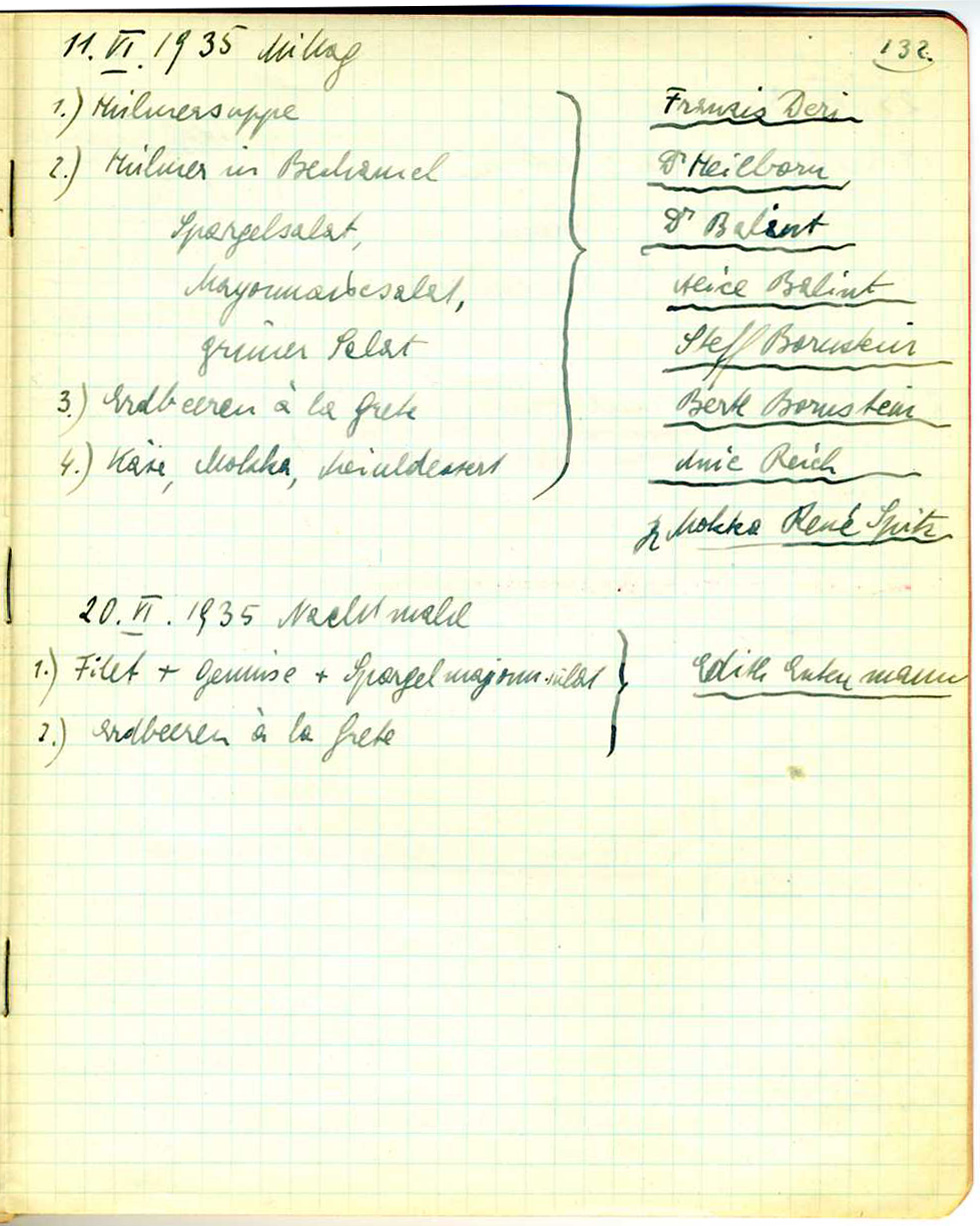 132.
11. VI. 1935 Mittag
1.) Hühnersuppe
2.) Hühner in Bechamel
Spargelsalat,
Mayonnaisesalat,
grüner Salat
3.) Erdbeeren à la Grete
4.) Käse, Mokka,
Franzis Deri
Dr Heilborn
Dr Balint
Alice Balint
Steff Bornstein
Berte Bornstein
Anie Reich
Mokka René Spitz
20. VI. 1935 Nachtmahl
1.) Filet + Gemüse + Spargelmajonn.salat
2.) Erdbeeren à la Grete
Edith Entenmann